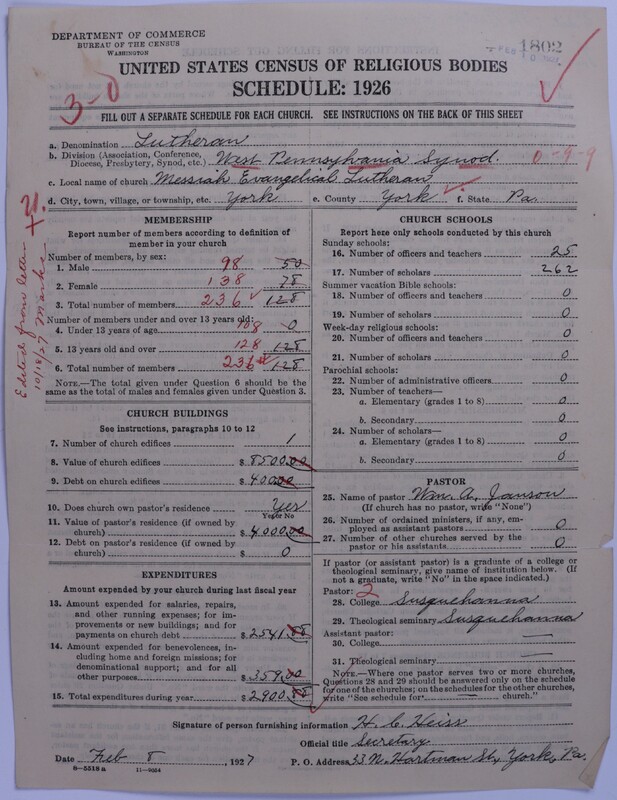 DEPARTMENT OF COMMERCE
BUREAU OF THE CENSUS
WASHINGTON
1802
UNITED STATES CENSUS OF RELIGIOUS BODIES
SCHEDULE: 1926
3-0
FILL OUT A SEPARATE SCHEDULE FOR EACH CHURCH. SEE INSTRUCTIONS ON THE BACK OF THIS SHEET
a. Denomination Lutheran
b. Division (Association, Conference, Diocese, Presbytery, Synod, etc.) West Pennsylvania Synod. 0-9-9
c. Local name of church Messiah Evangelical Lutheran
d. City, town, village, or township, etc. York e. County York f. State Pa.
Edited from letter
10/18/27 Marks
MEMBERSHIP
Report number of members according to definition of member in your church
Number of members, by sex:
1. Male 98 50
2. Female 138 78
3. Total number of members 236 128
Number of members under and over 13 years old:
4. Under 13 years of age 108 0
5. 13 years old and over 128 128
6. Total number of members 236 128
NOTE.—The total given under Question 6 should be the same as the total of males and females given under Question 3.
CHURCH BUILDINGS
See instructions, paragraphs 10 to 12
7. Number of church edifices 1
8. Value of church edifices $ 8500.00
9. Debt on church edifices $ 400.00
10. Does church own pastor's residence? Yes
Yes or No
11. Value of pastor's residence (if owned by church) $ 4000.00
12. Debt on pastor's residence (if owned by church) $ 0
EXPENDITURES
Amount expended by your church during last fiscal year
13. Amount expended for salaries, repairs, and other running expenses; for improvements or new buildings; and for payments on church debt $ 2541
14. Amount expended for benevolences, including home and foreign missions; for denominational support; and for all other purposes $ 359.00
15. Total expenditures during year $ 2900
CHURCH SCHOOLS
Report here only schools conducted by this church
Sunday schools:
16. Number of officers and teachers 25
17. Number of scholars 262
Summer vacation Bible schools:
18. Number of officers and teachers 0
19. Number of scholars 0
Week-day religious schools:
20. Number of officers and teachers 0
21. Number of scholars 0
Parochial schools:
22. Number of administrative officers 0
23. Number of teachers—
a. Elementary (grades 1 to 8) 0
b. Secondary 0
24. Number of scholars—
a. Elementary (grades 1 to 8) 0
b. Secondary 0
PASTOR
25. Name of pastor Wm. A. Janson
(If church has no pastor, write "None")
26. Number of ordained ministers, if any, employed as assistant pastors 0
27. Number of other churches served by the pastor or his assistants 0
If pastor (or assistant pastor) is a graduate of a college or theological seminary, give name of institution below. (If not a graduate, write "No" in the space indicated.)
Pastor: 2
28. College Susquehanna
29. Theological seminary Susquehanna
Assistant pastor:
30. College —
31. Theological seminary —
NOTE.—Where one pastor serves two or more churches, Questions 28 and 29 should be answered only on the schedule for one of the churches; on the schedules for the other churches, write "See schedule for — church."
Signature of person furnishing information H. C. Heiss
Official title Secretary
Date Feb 8, 1927 P. O. Address 33 N. Hartman St., York, Pa.
8—5518 a 11—9034